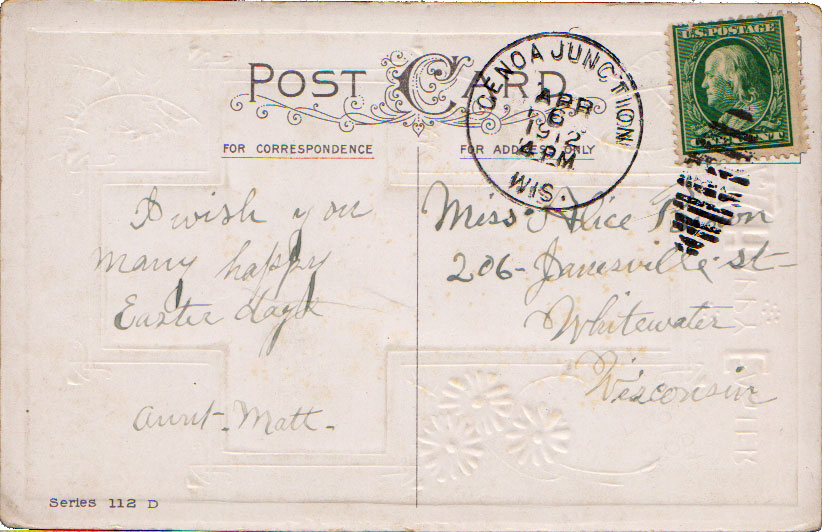 POST CARD
FOR CORRESPONDENCE
FOR ADDRESS ONLY
GENOA JUNCTION
APR
6
1912
4 PM
WIS.
U.S. POSTAGE
ONE CENT
I wish you
many happy
Easter days
Aunt. Matt.
Miss. Alice
206- Janesville. st-
Whitewater
Wisconsin
Series 112 D